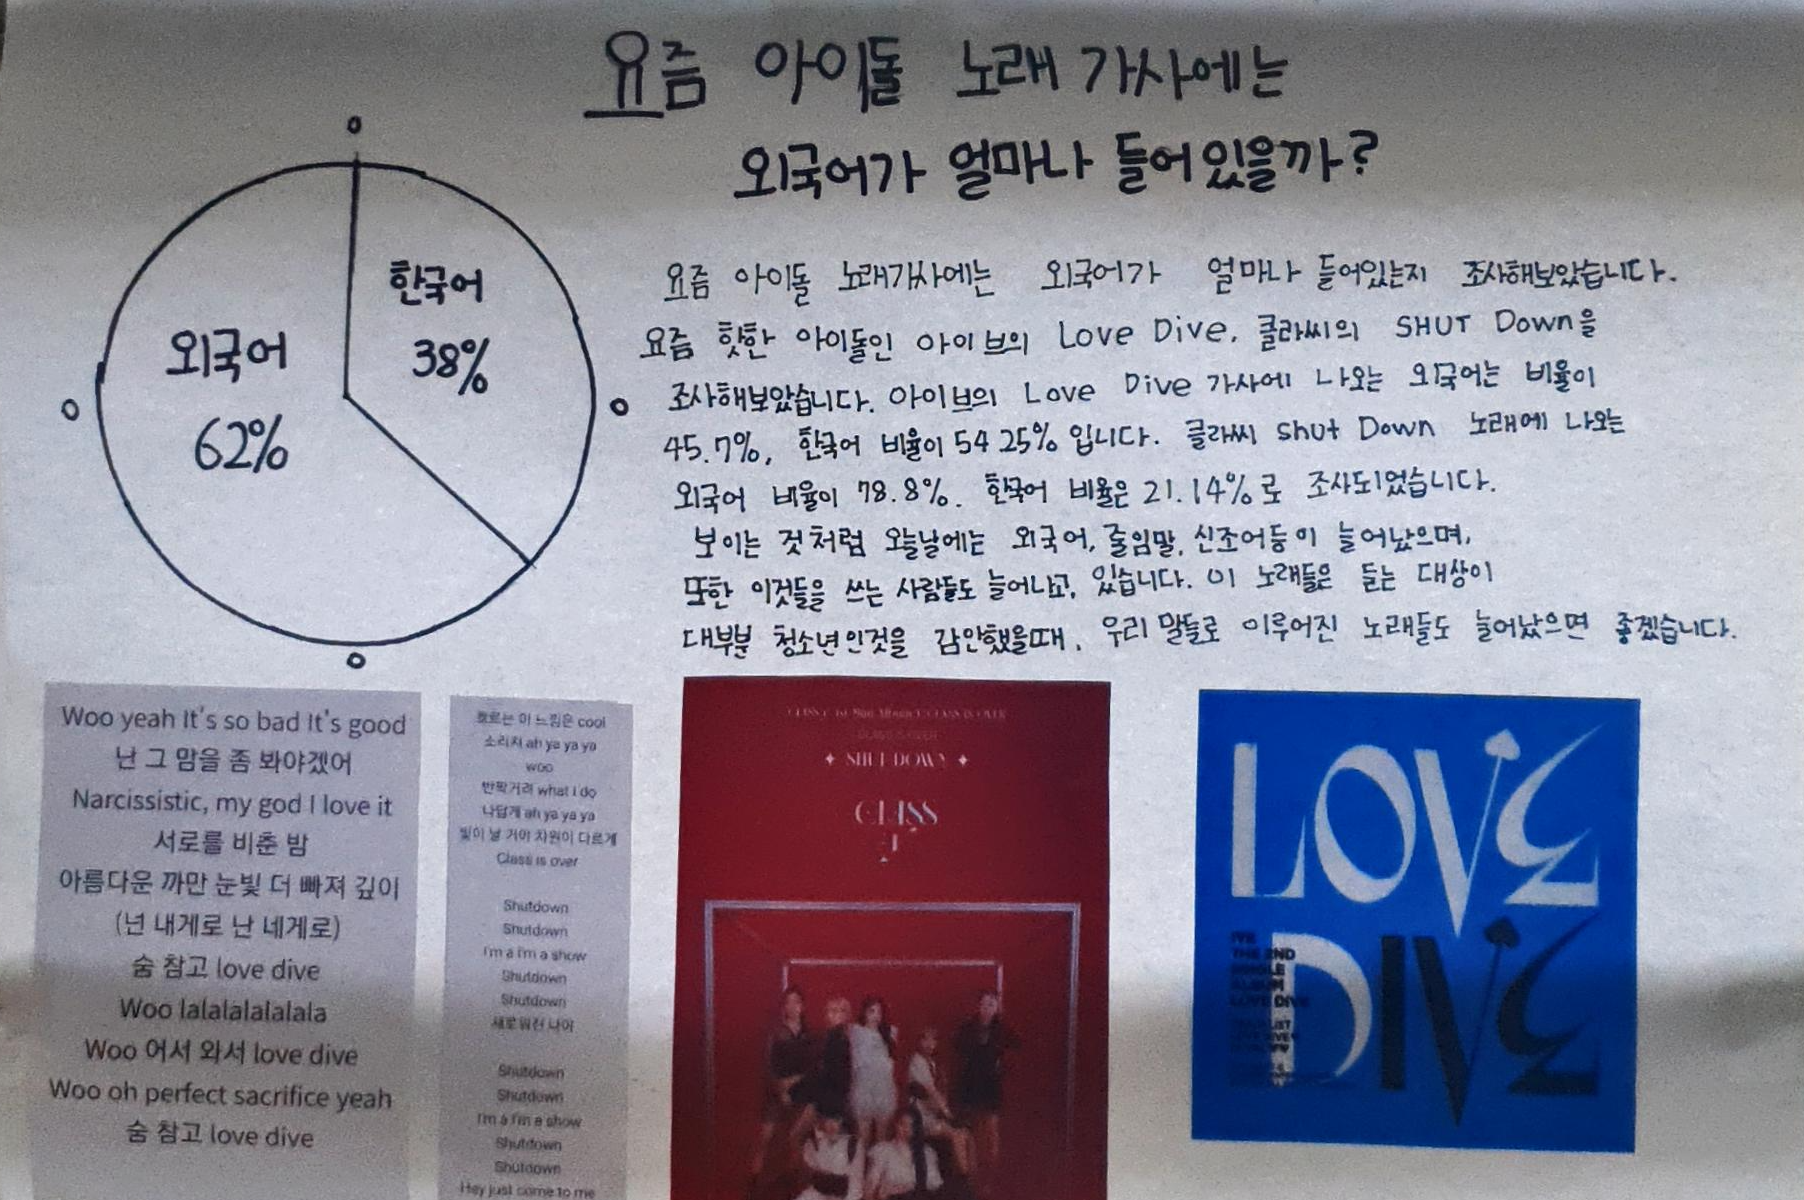 요즘 아이돌 노래 가사에는
외국어가 얼마나 들어있을까?
한국어
38%
외국어
62%
요즘 아이돌 노래가사에는 외국어가 얼마나 들어있는지 조사해보았습니다.
요즘 핫한 아이돌인 아이브의 Love Dive, 클라씨의 SHUT Down을
조사해보았습니다. 아이브의 Love Dive 가사에 나오는 외국어는 비율이
45.7%, 한국어 비율이 54 25% 입니다. 클라씨 shut Down 노래에 나오는
외국어 비율이 78.8%. 한국어 비율은 21.14%로 조사되었습니다.
보이는 것처럼 오늘날에는 외국어, 줄임말, 신조어등이 늘어났으며,
또한 이것들을 쓰는 사람들도 늘어나고, 있습니다. 이 노래들은 듣는 대상이
대부분 청소년인것을 감안했을때, 우리 말들로 이루어진 노래들도 늘어났으면 좋겠습니다.
Woo yeah It's so bad It's good
난 그 맘을 좀 봐야겠어
Narcissistic, my god I love it
서로를 비춘 밤
아름다운 까만 눈빛 더 빠져 깊이
(넌 내게로 난 네게로)
숨 참고 love dive
Woo lalalalalalala
Woo 어서 와서 love dive
Woo oh perfect sacrifice yeah
숨 참고 love dive
흐르는 이 느낌은 cool
소리쳐 ah ya ya ya
woo
반짝거려 what I do
나답게 ah ya ya ya
빛이 날 거야 차원이 다르게
Class is over
Shutdown
Shutdown
I'm a I'm a show
Shutdown
Shutdown
새로워진 나야
Shutdown
Shutdown
I'm a I'm a show
Shutdown
Shutdown
Hey just come to me
CLASS IS OVER
SHUT DOWN
CLASS
LOVE
DIVE
IVE
THE 2ND
SINGLE
ALBUM
LOVE DIVE